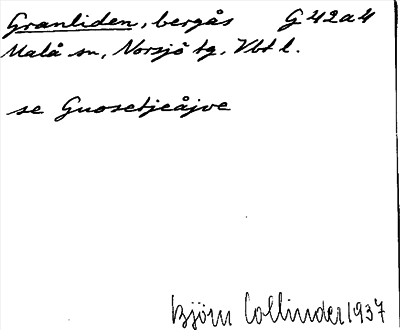 Granliden, bergås G 42a4
Malå sn, Norsjö tg, Vbt l.
se Guosetjeåjve
Björn Collinder 1937